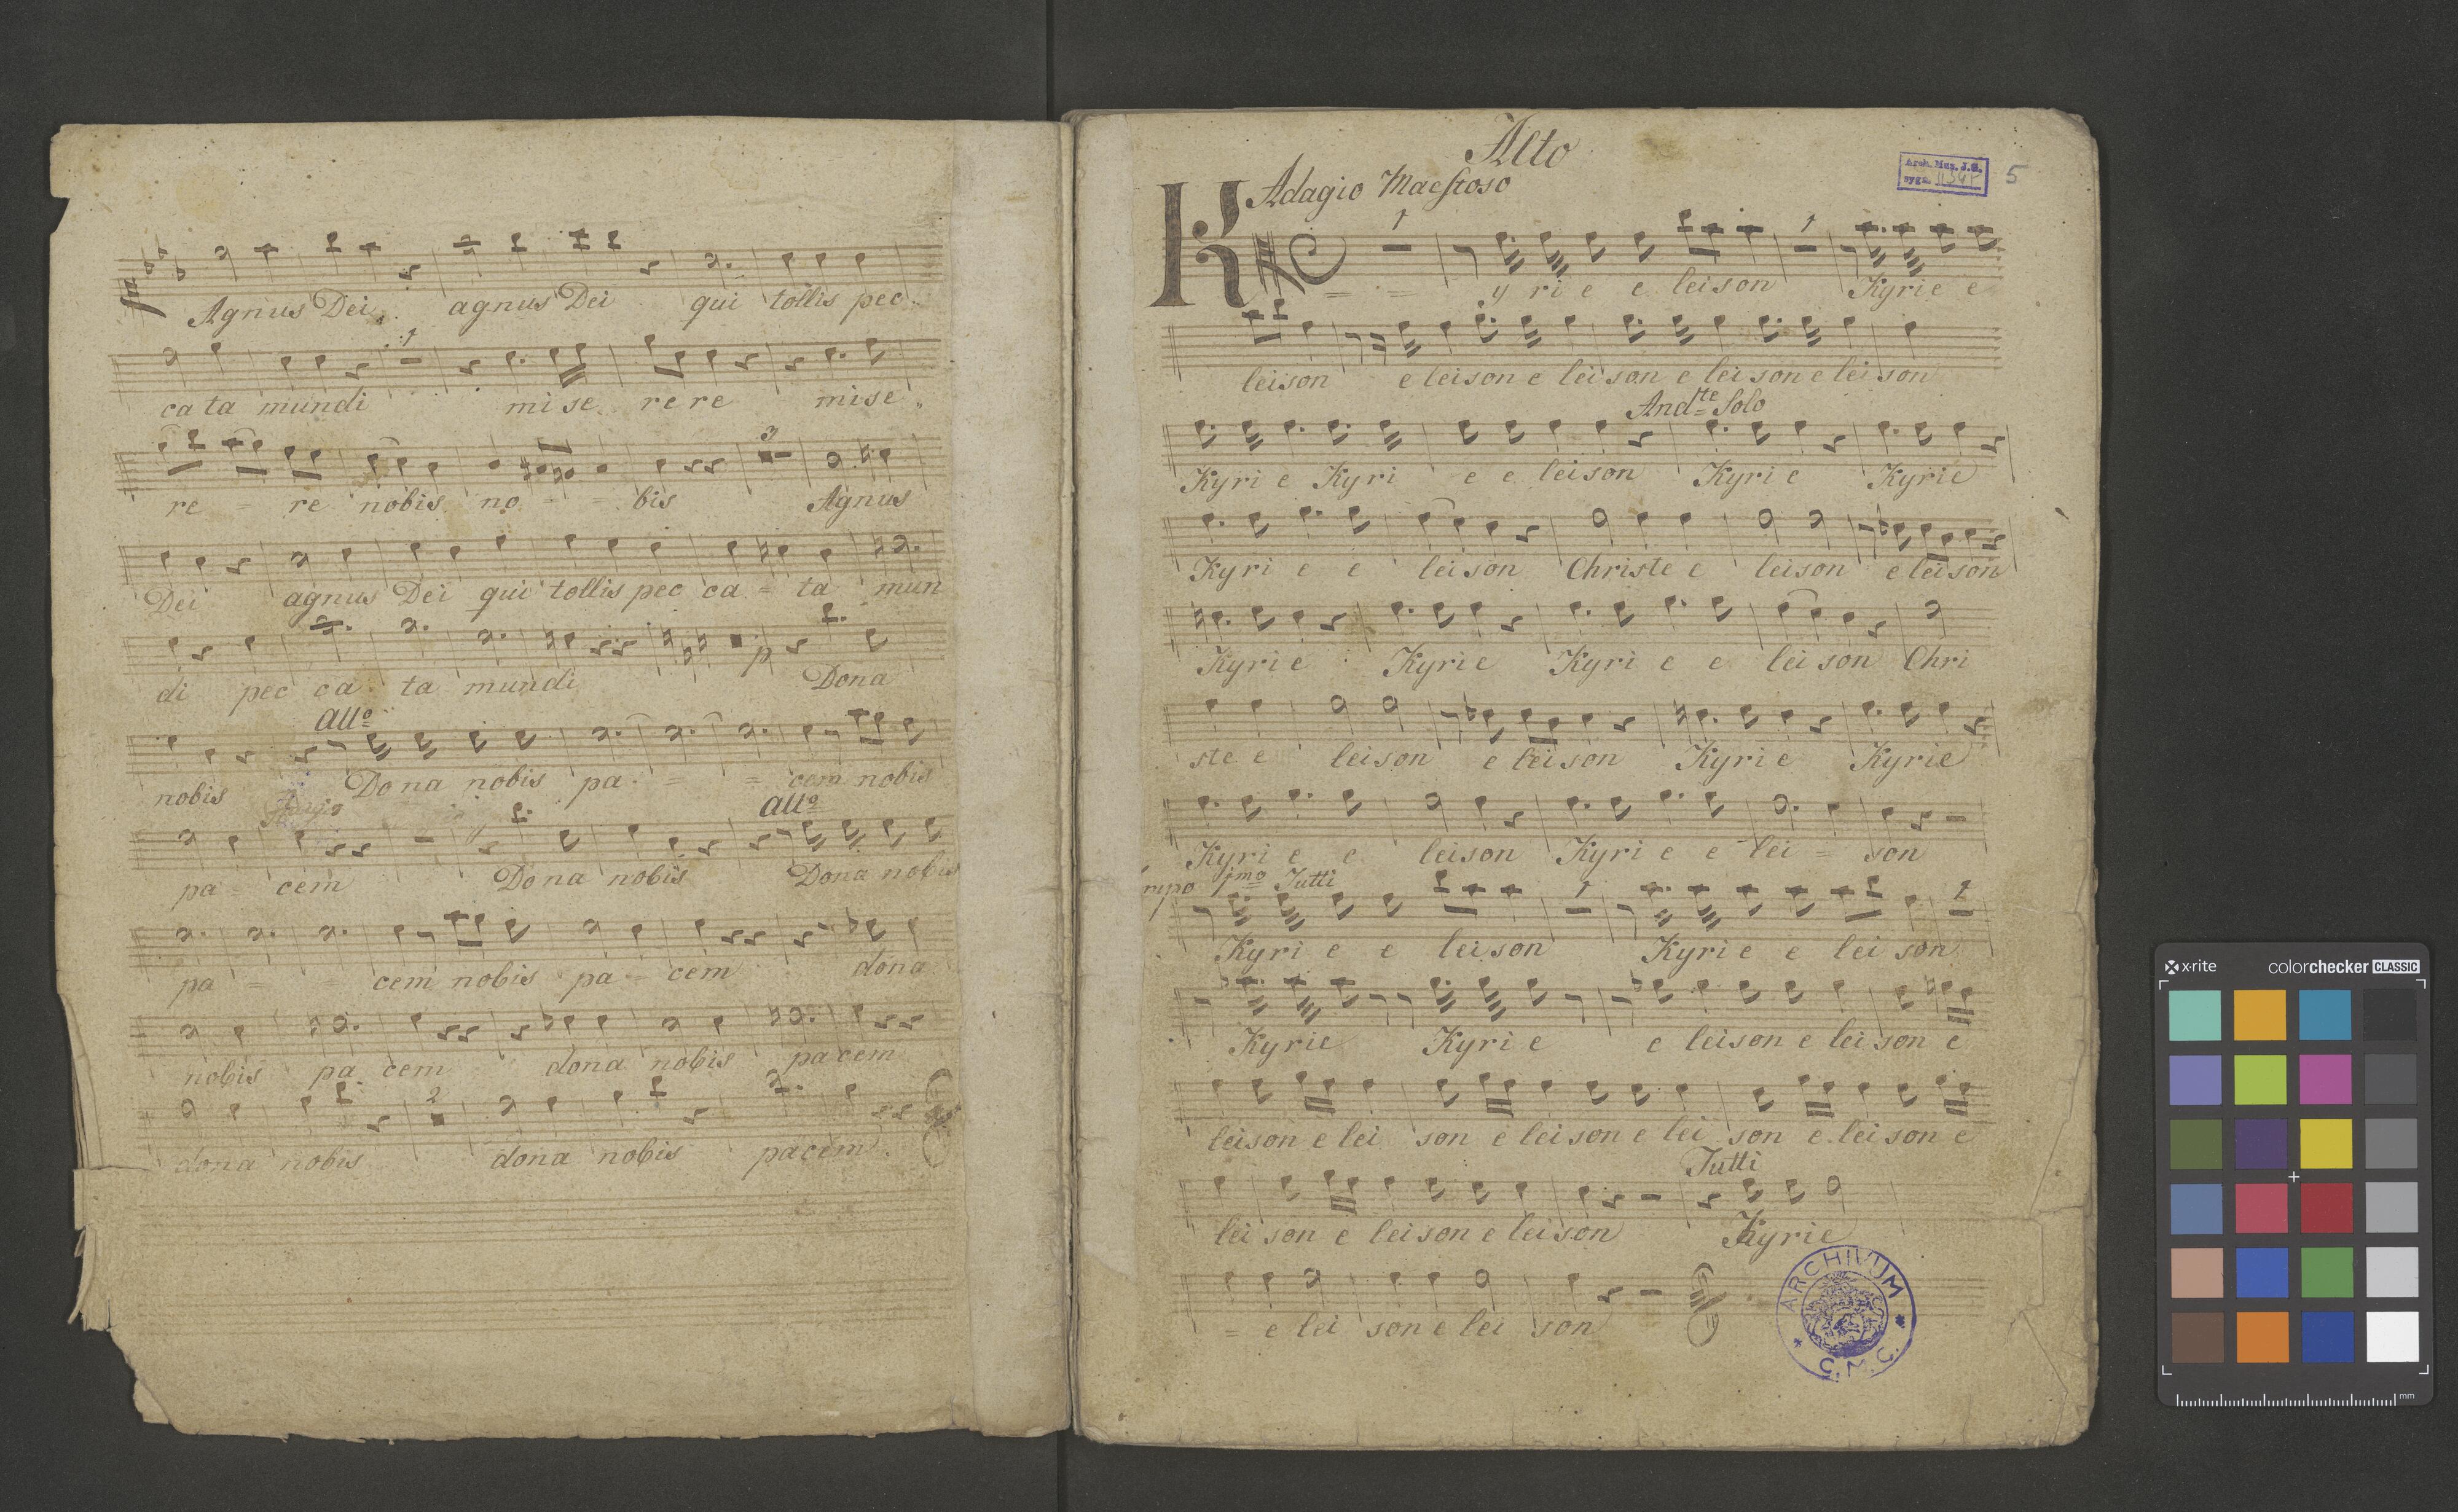 Agnus Dei agnus Dei qui tollis pec
1
ca ta mundi mi se re re mise
3
re - re nobis no - - bis Agnus
Dei agnus Dei qui tollis pec ca = ta mun
p
di pec ca ta mundi Dona
all:o
nobis Dona nobis pa = = cem nobis
all:o
pa = cem Dona nobis Dona nobis
pa = = cem nobis pa = cem dona
nobis pa cem dona nobis pacem
2
dona nobis dona nobis pacem
Alto
Adagio Maestoso
Arch. Mus. J.G.
sygn.
5
1 1
K = = y ri e e leison Kyri e e
leison e leison e lei son e lei son e lei son
And:te Solo
Kyri e Kyri e e leison Kyri e Kyrie
Kyri e e leison Christe e leison e leison
Kyri e Kyrie Kyri e e lei son Chri
ste e leison e leison Kyri e Kyrie
Kyri e e leison Kyri e e lei = son
mpo 1mo Tutti
1 1
Kyri e e leison Kyri e e lei son
Kyrie Kyri e e leison e lei son e
leison e lei son e leison e lei son e leison e
Tutti
lei son e leison e leison Kyrie
= e lei son e lei son
ARCHIVUM
* C.M.C. *
x·rite
colorchecker CLASSIC
mm